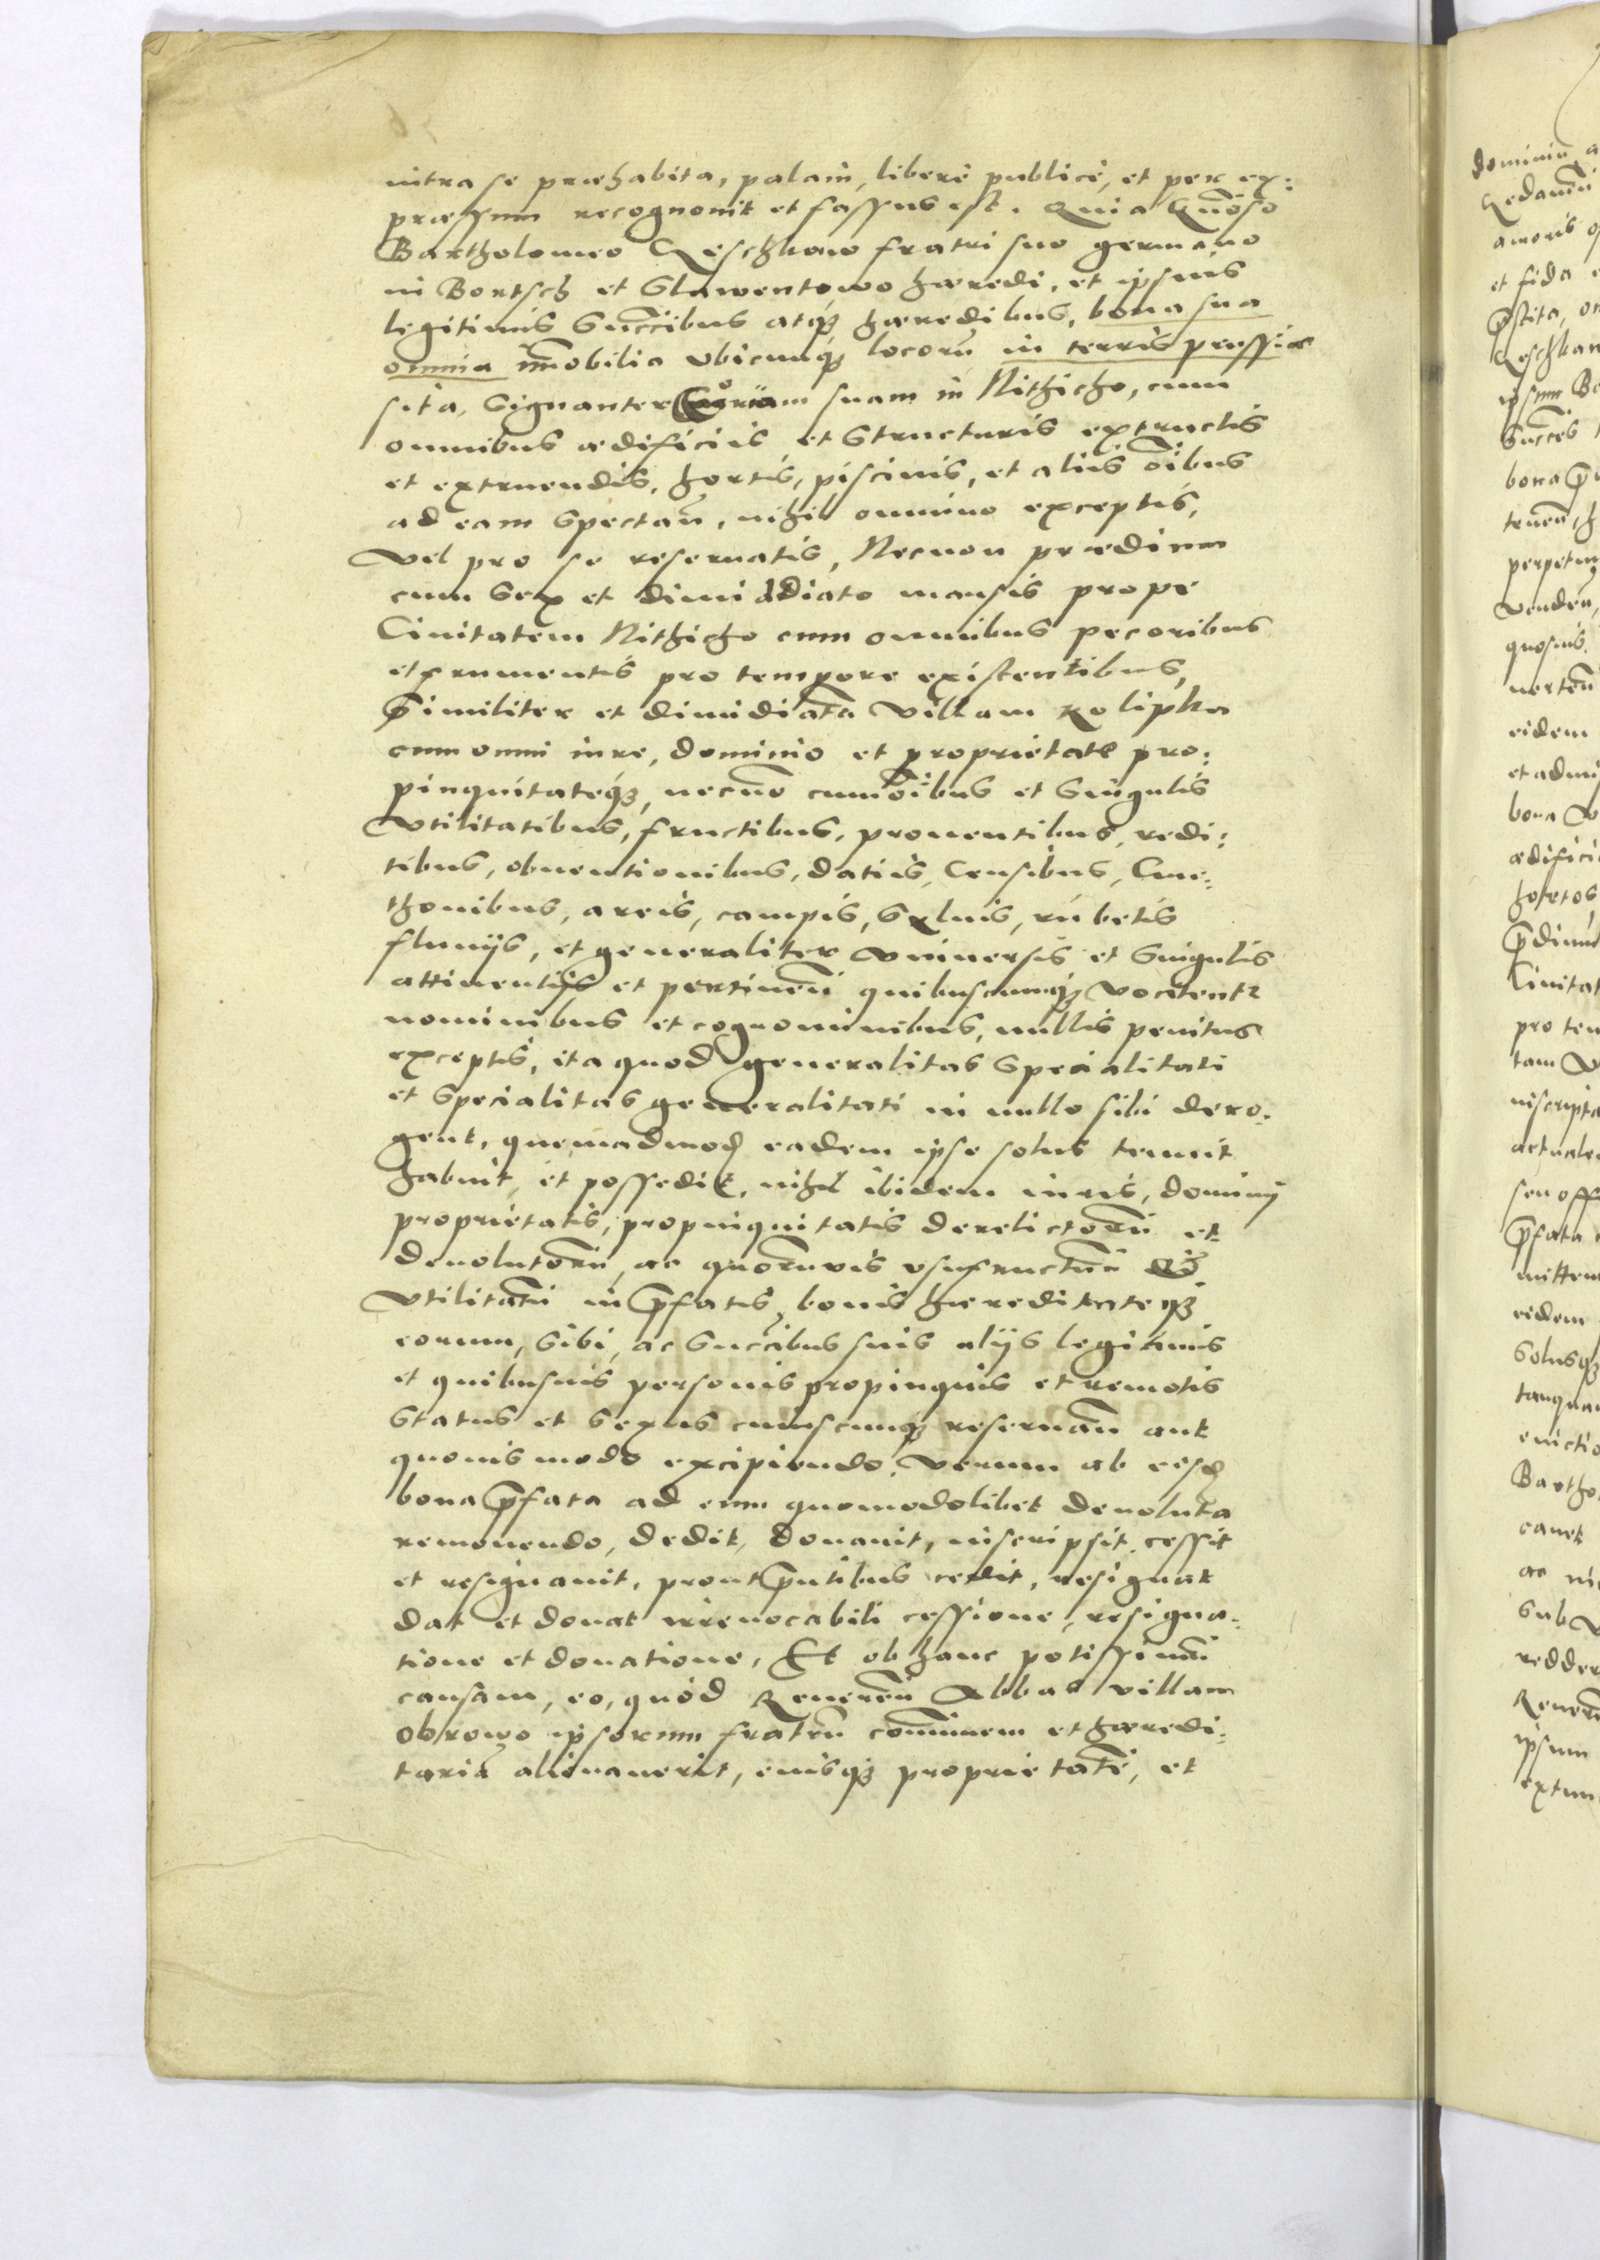 intra se præhabita, palam, libere publice, et per ex:
præssum recognouit et fassus est. Quia Gnoso
Bartholomeo Zeschkaw fratri suo germano
in Bortsch et Glawentowo hæredi, et ipsius
legitimis Succibus atq3 hæredibus, bona sua
omnia immobilia vbicunq3 locorū in terris prussiæ
sita, Signanter Curiam suam in Nithicho, cum
omnibus ædificiis et Structuris extructis
et extruendis, hortis, piscinis, et aliis oībus
ad eam Spectan, nihil omnino exceptis,
vel pro se reseruatis, Necnon prædium
cum Sex et dimidiato mansis prope
Ciuitatem Nithicho cum omnibus pecoribus
et frumentis pro tempore existentibus,
Similiter et dimidiatā villam Kolipka
cum omni iure, dominio et proprietate pro:
pinquitateq3, necno cum oībus et Singulis
Vtilitatibus, fructibus, prouentibus, redi:
tibus, obuentionibus, datiis, Censibus, Cme:
thonibus, areis, campis, Syluis, rubetis
fluuijs, et generaliter vniuersis et Singulis
attinentijs et pertinen quibuscunq3 vocitentr
nominibus et cognominibus, nullis penitus
exceptis, ita quod generalitas Specialitati
et Specialitas generalitati in nullo sibi dero:
gent, quemadmod eadem ipse solus tenuit
habuit, et possedit, nihil ibidem iuris, dominij
proprietatis, propinquitatis derelictorū et
deuolutorū, ac quorumuis vsufructuū
Vtilitatū in pfatis bonis hæreditateq3
eorum, Sibi, ac Succibus suis alijs legitimis
et quibusuis personis propinquis et remotis
Status et Sexus cuiuscunq3 reseruan aut
quouis modo excipiendo, Verum ab eisd
bona pfata ad eum quomodolibet deuoluta
remouendo, dedit, donauit, inscripsit, cessit
et resignauit, prout pntibus cedit, resignat
dat et donat irreuocabili cessione, resigna:
tione et donatione, Et ob hanc potissimū
causam, eo, quod Reueren Abbas villam
Obrowo ipsorum fratrū communem et hæredi:
tariā alienauerit, eiusq3 proprietatē, et